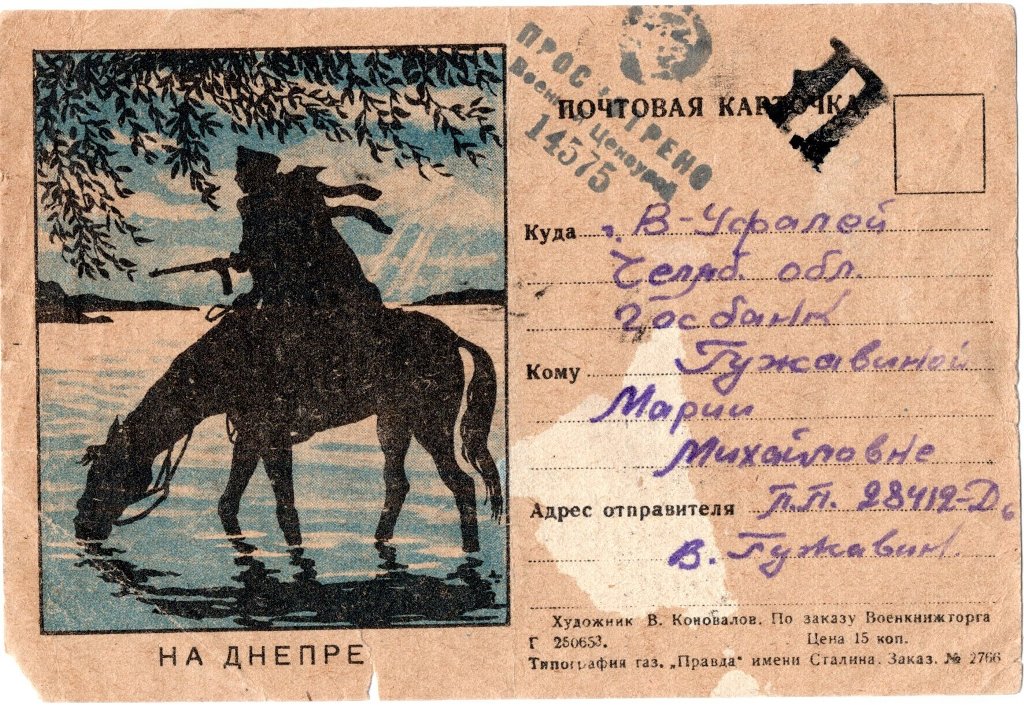 НА ДНЕПРЕ
ПРОСМОТРЕНО
Военной Цензурой
14575
ПОЧТОВАЯ КАРТОЧКА
Куда г. В-Уфалей
Челяб. обл.
Госбанк
Кому Гужавиной
Марии
Михайловне
Адрес отправителя П.П. 28412-Д
В. Гужавин.
Художник В. Коновалов. По заказу Военкнижторга
Г 250653. Цена 15 коп.
Типография газ. „Правда“ имени Сталина. Заказ. № 2766